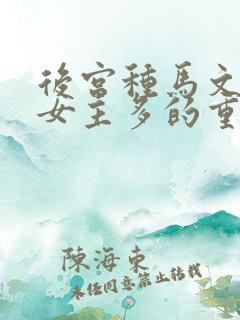 後宮種馬文
女主多的重
陳海東
未经同意禁止转载